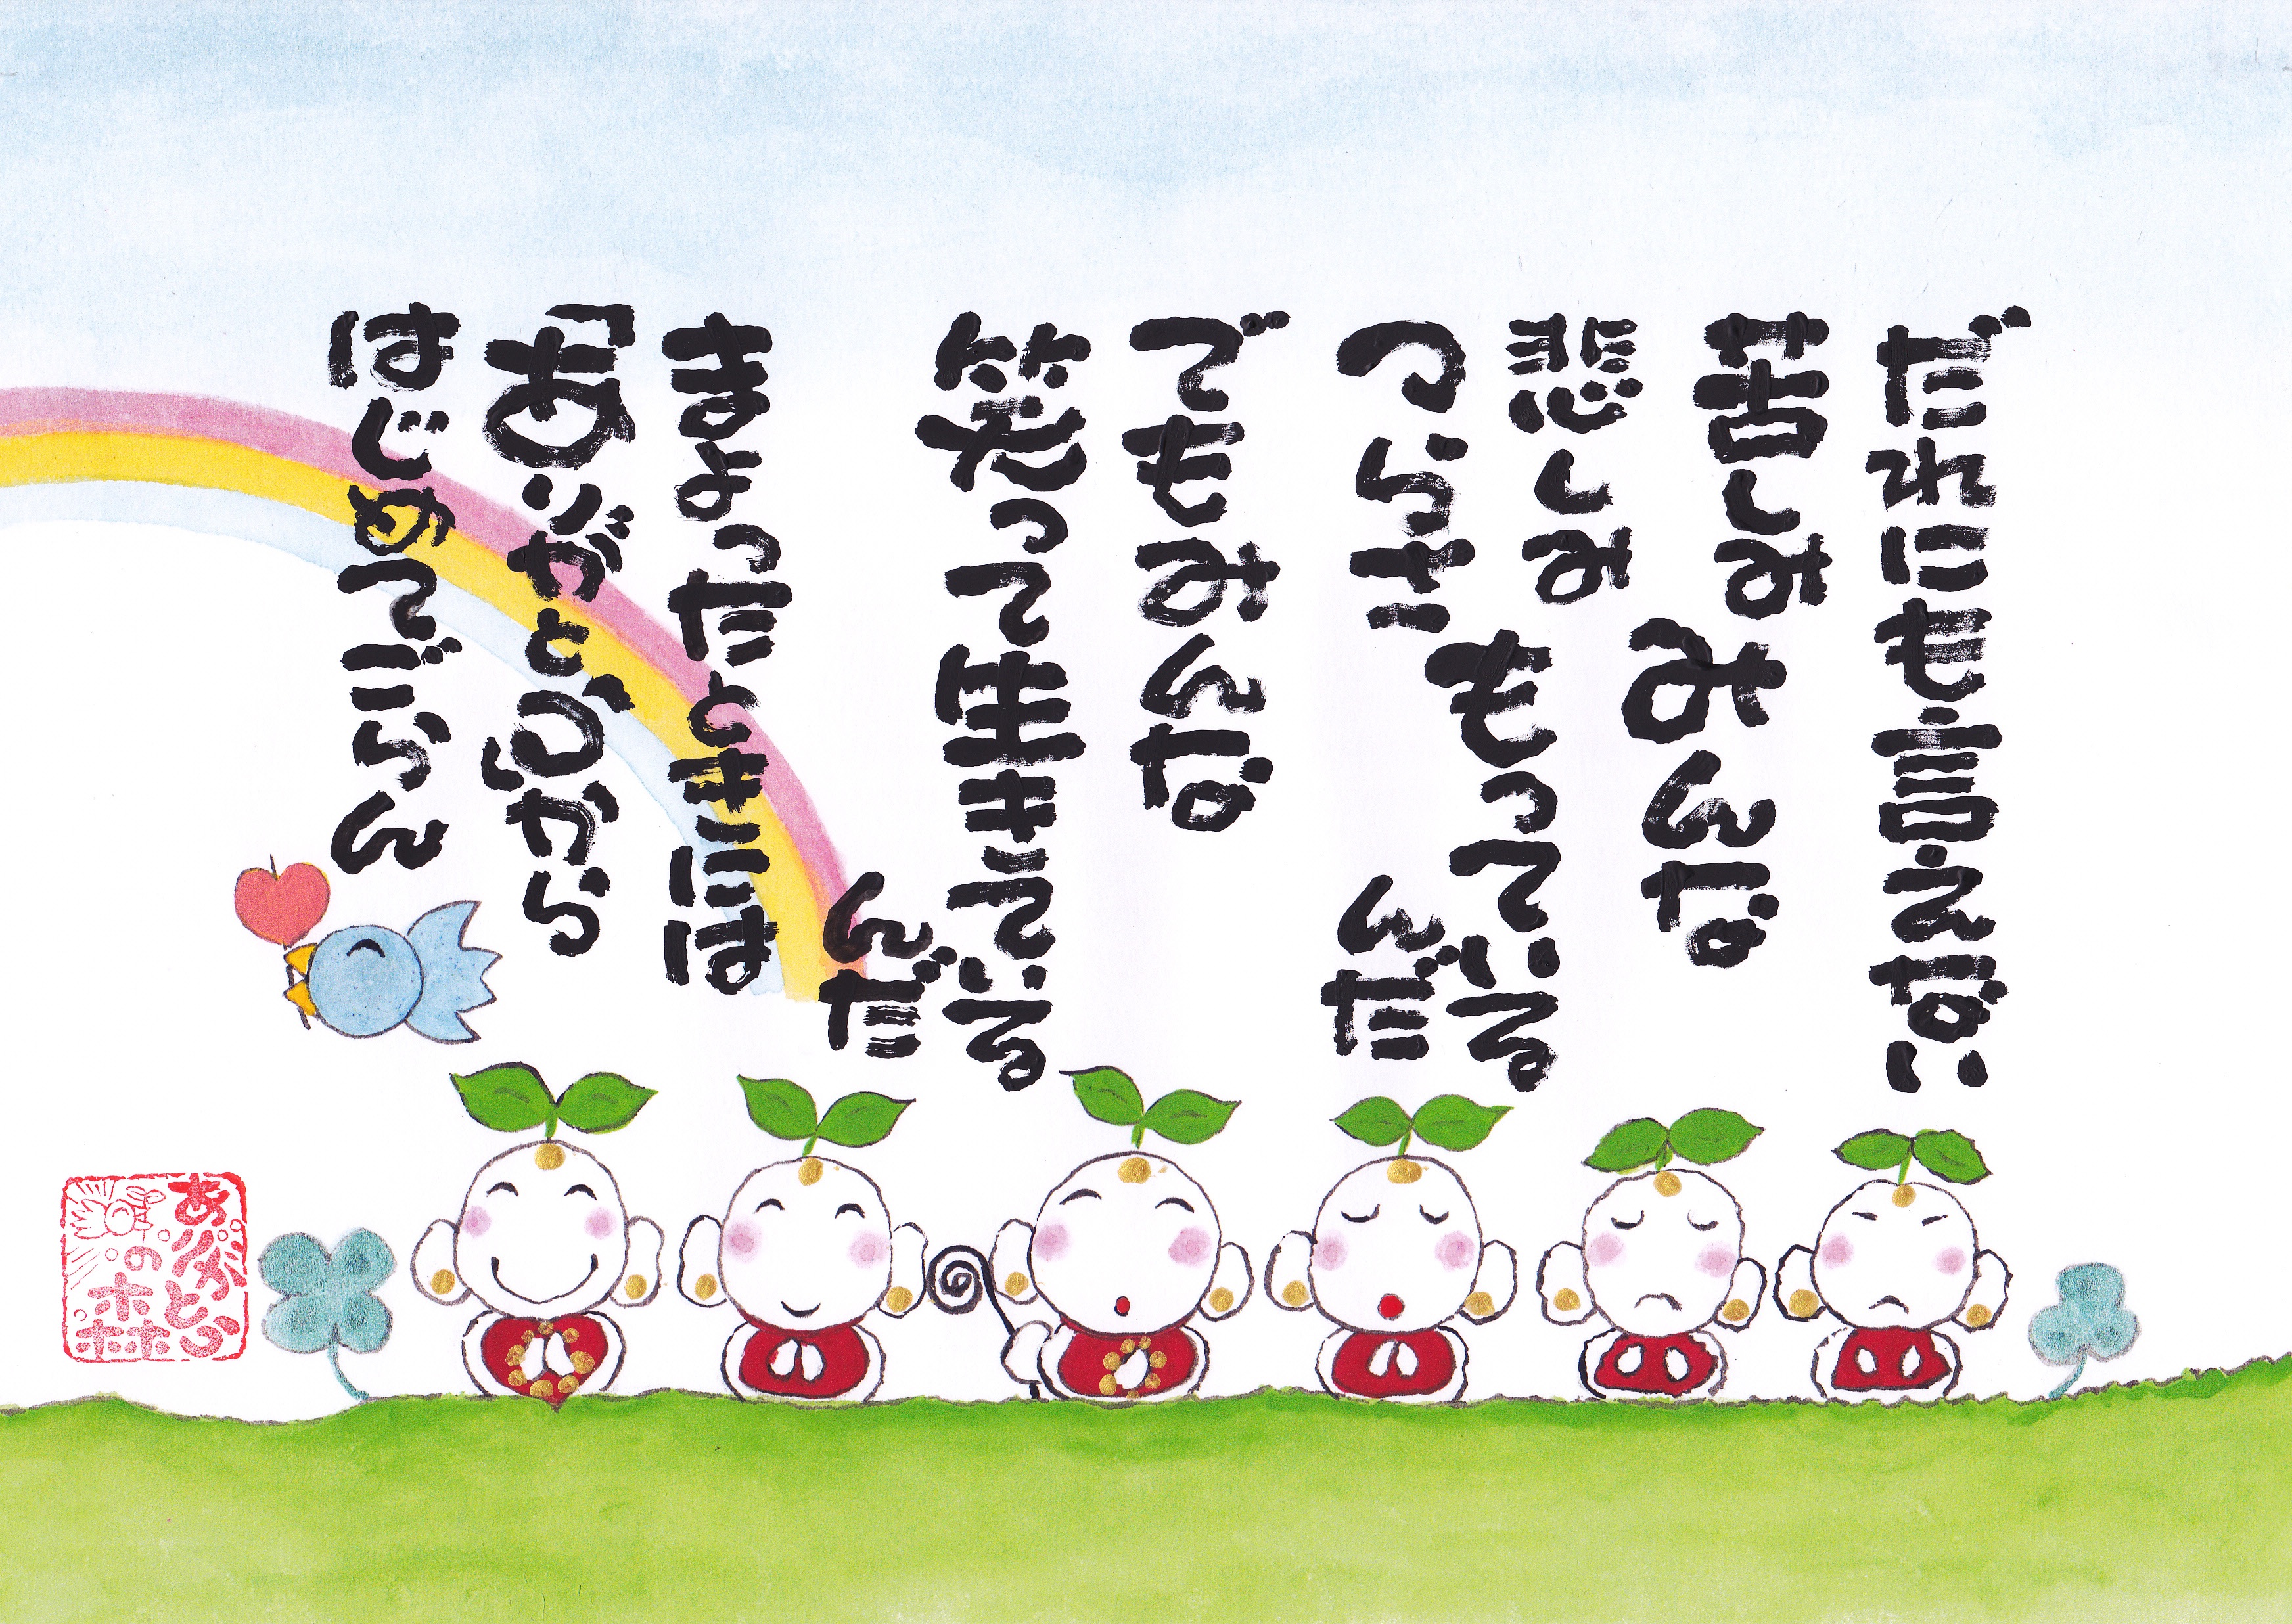 だれにも言えない
苦しみ
悲しみ
つらさ
みんな
もっている
んだ
でもみんな
笑って生きている
んだ
まよったときには
「ありがとう」から
はじめてごらん
ありがとう
の森